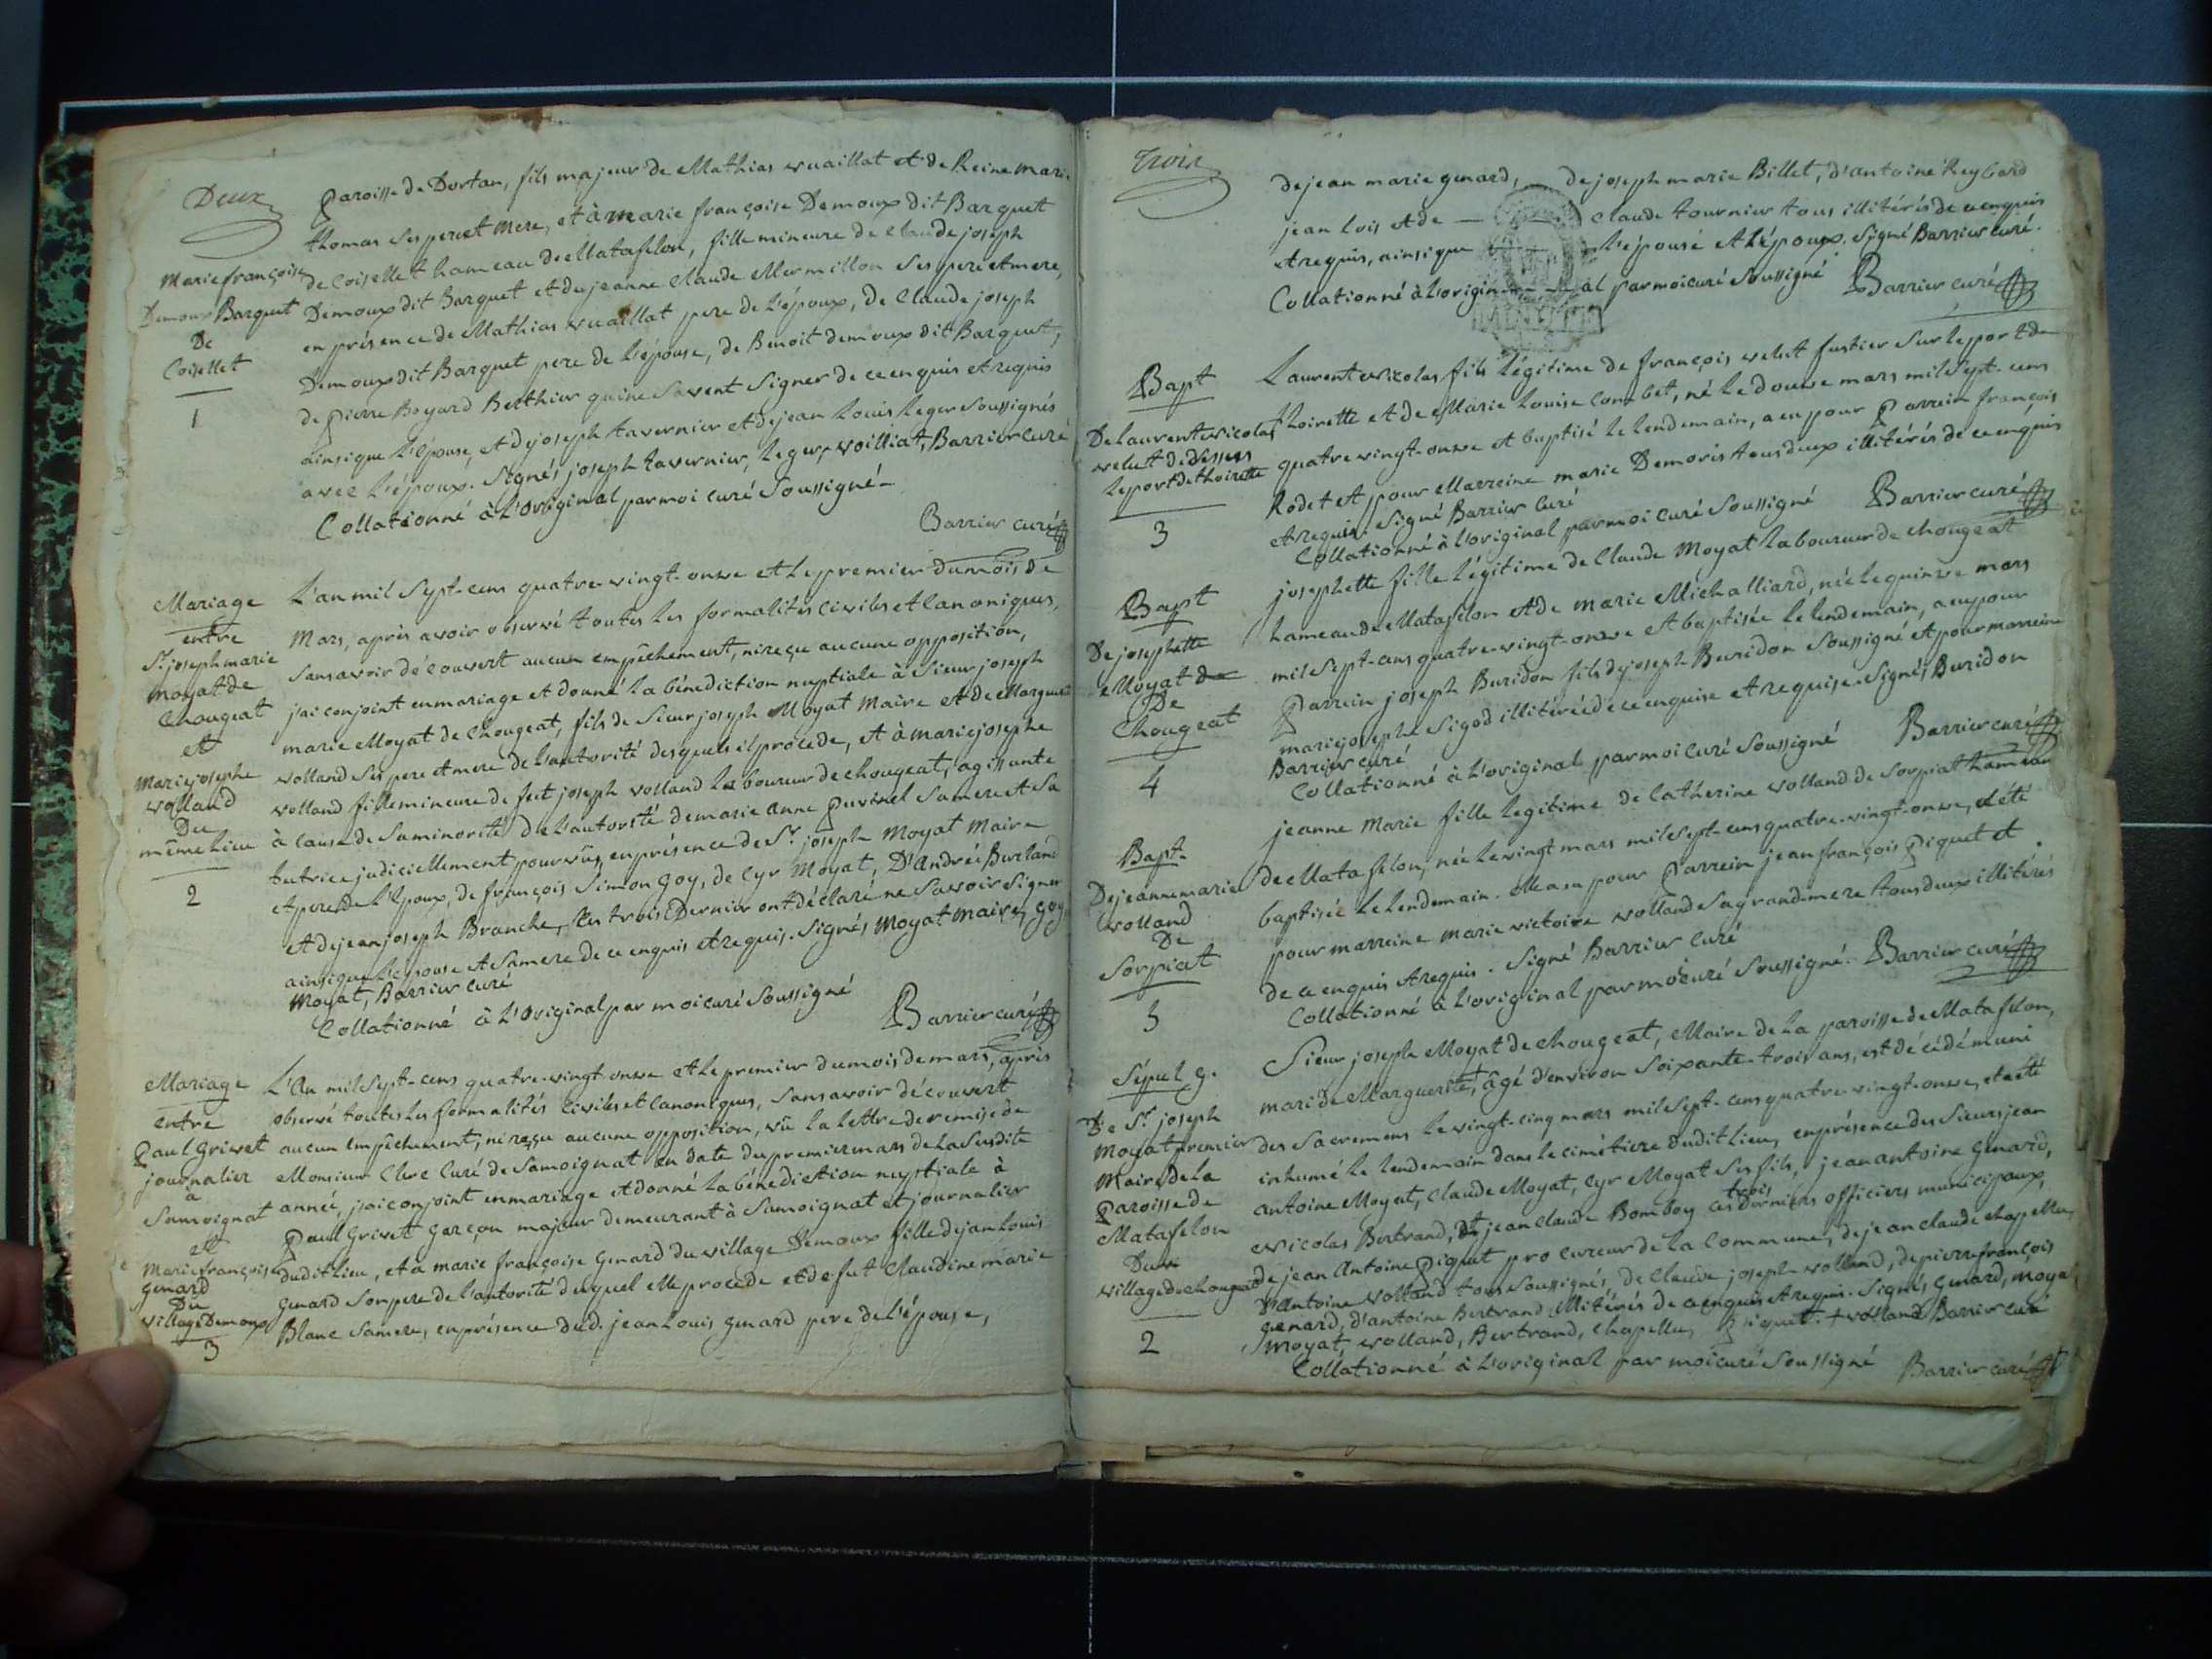 Deux
paroisse de Dortan, fils majeur de Mathias vuaillat et de Reine mari
thomas ses pere et mere, et à marie françoise Demoux dit Barquet
de Coisellet hameau de Matafelon, fille mineure de Claude joseph
Demoux dit Barquet et de jeanne Claude Mermillon ses pere et mere,
en présence de Mathias vuaillat pere de l'époux, de Claude joseph
Demoux dit Barquet pere de l'épouse, de Benoit demoux dit Barquet,
de pierre Boyard Berthier qui ne savent signer de ce enquis et requis
ainsi que l'épouse, et de joseph tavernier et de jean Louis Leger soussignés
avec l'époux. Signés joseph tavernier, leger, voilliat, Barrier curé
Collationné à l'original par moi curé soussigné
Barrier curé
Marie françoise
Demoux Barquet
De
Coisellet
1
Mariage
entre
Sr. joseph marie
moyat de
Chougeat
et
Marie josephe
volland
Du
même lieu
2
L'an mil sept-cens quatre-vingt-onze et le premier du mois de
Mars, après avoir observé toutes les formalités civiles et canoniques,
sans avoir découvert aucun empêchement, ni reçu aucune opposition,
j'ai conjoint en mariage et donné la bénediction nuptiale à Sieur joseph
marie Moyat de Chougeat, fils de Sieur joseph Moyat Maire et de Marguerite
volland ses pere et mere de l'autorité desquels il procede, et à marie josephe
volland fille mineure de feu joseph volland laboureur de chougeat, agissante
à cause de sa minorité de l'autorité de marie anne puvinel sa mere et sa
tutrice judiciellement pourvüe, en présence de Sr. joseph Moyat Maire
et pere de l'époux, de françois Simon goy, de Cyr Moyat, D'andré Burland
et de jean joseph Branche, les trois Dernier ont déclaré ne savoir signer
ainsi que l'épouse et sa mere de ce enquis et requis. Signés Moyat maire, goy
moyat, Barrier curé
Collationné à l'Original par moi curé soussigné
Barrier curé
Mariage
entre
paul Grivet
journalier
à
Samoignat
et
Marie françoise
genard
Du
village Demoux
3
L'An mil sept-cens quatre-vingt onze et le premier du mois de mars, après
observé toutes les formalités civiles et canoniques, sans avoir découvert
aucun empêchement, ni reçu aucune opposition, vû la lettre de remise de
Monsieur Clerc Curé de Samoignat en date du premier mars de la susdite
année, j'ai conjoint en mariage et donné la bénediction nuptiale à
paul Grivet garçon majeur demeurant à Samoignat et journalier
dudit lieu, et à marie françoise genard du village Demoux fille de jean louis
genard son pere de l'autorité duquel elle procede et de fut Claudine marie
Blanc sa mere, en présence dud. jean Louis genard pere de l'épouse,
Trois
de jean marie genard, de joseph marie Billet, d'antoine Reybard
jean lois et de Claude tournier tous illitérés de ce enquis
et requis, ainsi que l'épouse et l'époux. Signé Barrier curé.
Collationné à l'origin al par moi curé soussigné Barrier curé
Bapt
De laurent Nicolas
velut de dessus
le port de thoirette
3
Laurent Nicolas fils légitime de françois velut fustier sur le port de
thoirette et de Marie Louise Combet, né le douze mars mil sept-cens
quatre vingt-onze et baptisé le lendemain, a eu pour parrein françois
Rodet et pour Marreine marie Demoris tous deux illitérés de ce enquis
et requis. Signé Barrier Curé
Collationné à l'original par moi curé soussigné Barrier curé
Bapt
De josephette
Moyat
De
Chougeat
4
josephette fille légitime de Claude Moyat laboureur de chougeat
hameau de Matafelon et de Marie Michalliard, née le quinze mars
mil sept-cens quatre-vingt-onze et baptisée le lendemain, a eu pour
parrein joseph Buridon fils de joseph Buridon soussigné et pour marreine
marie josephe Sigod illitérée de ce enquise et requise. Signés Buridon
Barrier curé
Collationné à l'original par moi curé soussigné Barrier curé
Bapt.
De jeanne marie
volland
De
Sorpiat
5
jeanne Marie fille legitime de Catherine volland de Sorpiat hameau
de Matafelon, née le vingt mars mil sept-cens quatre-vingt-onze, et été
baptisée le lendemain. Elle a eu pour parrein jean françois piquet et
pour marreine marie victoire volland sa grand-mere tous deux illitérés
de ce enquis et requis. Signé Barrier Curé
Collationné à l'original par moi curé soussigné. Barrier curé
Sépul g.
De Sr. joseph
Moyat premier
Maire de la
paroisse de
Matafelon
Du
village de chougeat
2
Sieur joseph Moyat de chougeat, Maire de la paroisse de Matafelon,
mari de Marguerite + âgé d'environ soixante-trois ans, est décédé muni
des sacremens le vingt-cinq mars mil sept-cens quatre-vingt-onze, et a été
inhumé le lendemain dans le cimétiere dudit lieu, en présence des Sieurs jean
antoine Moyat, Claude Moyat, Cyr Moyat ses fils, jean antoine genard,
Nicolas Bertrand, et jean Claude Bomboy ces trois derniers officiers municipaux,
de jean Antoine piquet procureur de la Commune, de jean claude chapellu,
d'Antoine volland tous soussignés, de Claude joseph volland, de pierre françois
genard, d'antoine Bertrand illitérés de ce enquis et requis. Signés genard, moyat,
moyat, volland, Bertrand, Chapellu, piquet. + volland Barrier curé
Collationné à l'original par moi curé soussigné Barrier curé